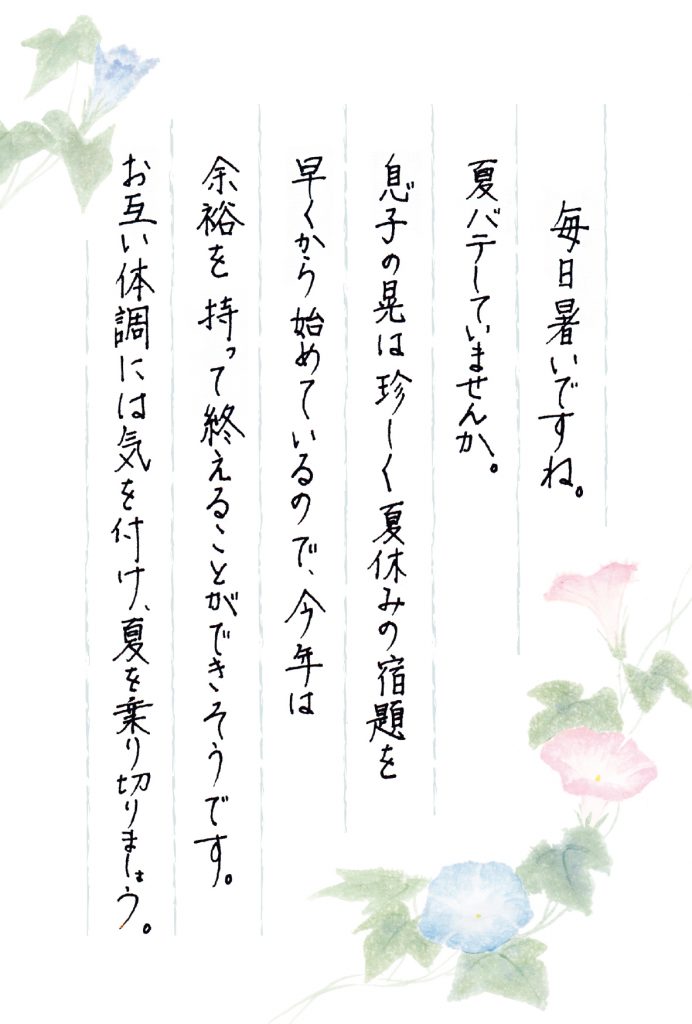 毎日暑いですね。
夏バテしていませんか。
息子の晃は珍しく夏休みの宿題を
早くから始めているので、今年は
余裕を持って終えることができそうです。
お互い体調には気を付け、夏を乗り切りましょう。